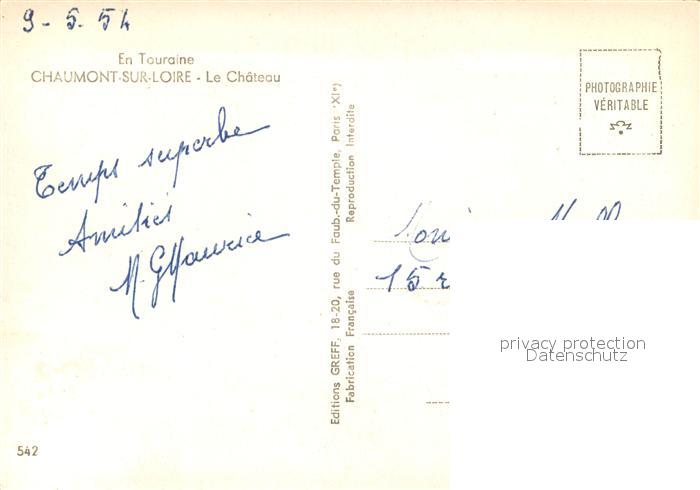 9-5-54
En Touraine
CHAUMONT-SUR-LOIRE - Le Château
Temps superbe
Amitiés
M. G Maurice
542
Editions GREFF, 18-20, rue du Faub.-du-Temple, Paris (XIe)
Fabrication Française Reproduction Interdite
PHOTOGRAPHIE
VÉRITABLE
15 r
privacy protection
Datenschutz